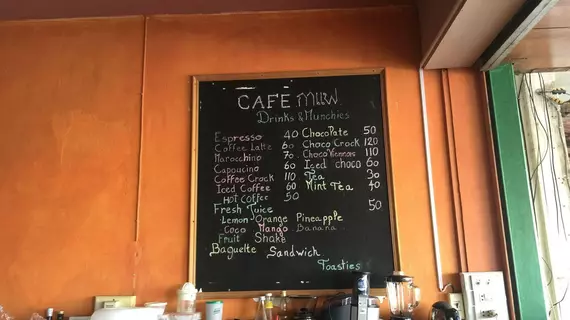 CAFE MUW
Drinks & Munchies
Espresso 40 ChocoLate 50
Coffee Latte 60 Choco Crock 120
Marocchino 70 Choco Viennois 110
Capoucino 60 Iced choco 60
Coffee Crock 110 Tea 30
Iced Coffee 60 Mint Tea 40
Hot Coffee 50
Fresh Juice 50
Lemon Orange Pineapple
Coco Mango Banana
Fruit Shake
Baguette Sandwich
Toasties